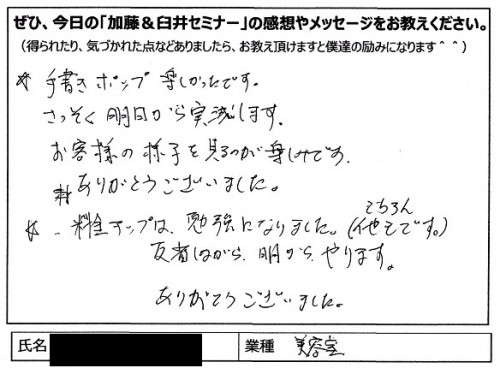 ぜひ、今日の「加藤&臼井セミナー」の感想やメッセージをお教えください。
(得られたり、気づかれた点などありましたら、お教え頂けますと僕達の励みになります＾＾)
☆ 手書きポップ 楽しかったです。
さっそく 明日から実践します。
お客様の様子を見るのが楽しみです。
ありがとうございました。
☆ 料金アップは、勉強になりました。(他もです。)
もちろん
反省しながら、明日から、やります。
ありがとうございました。
氏名
業種 美容室